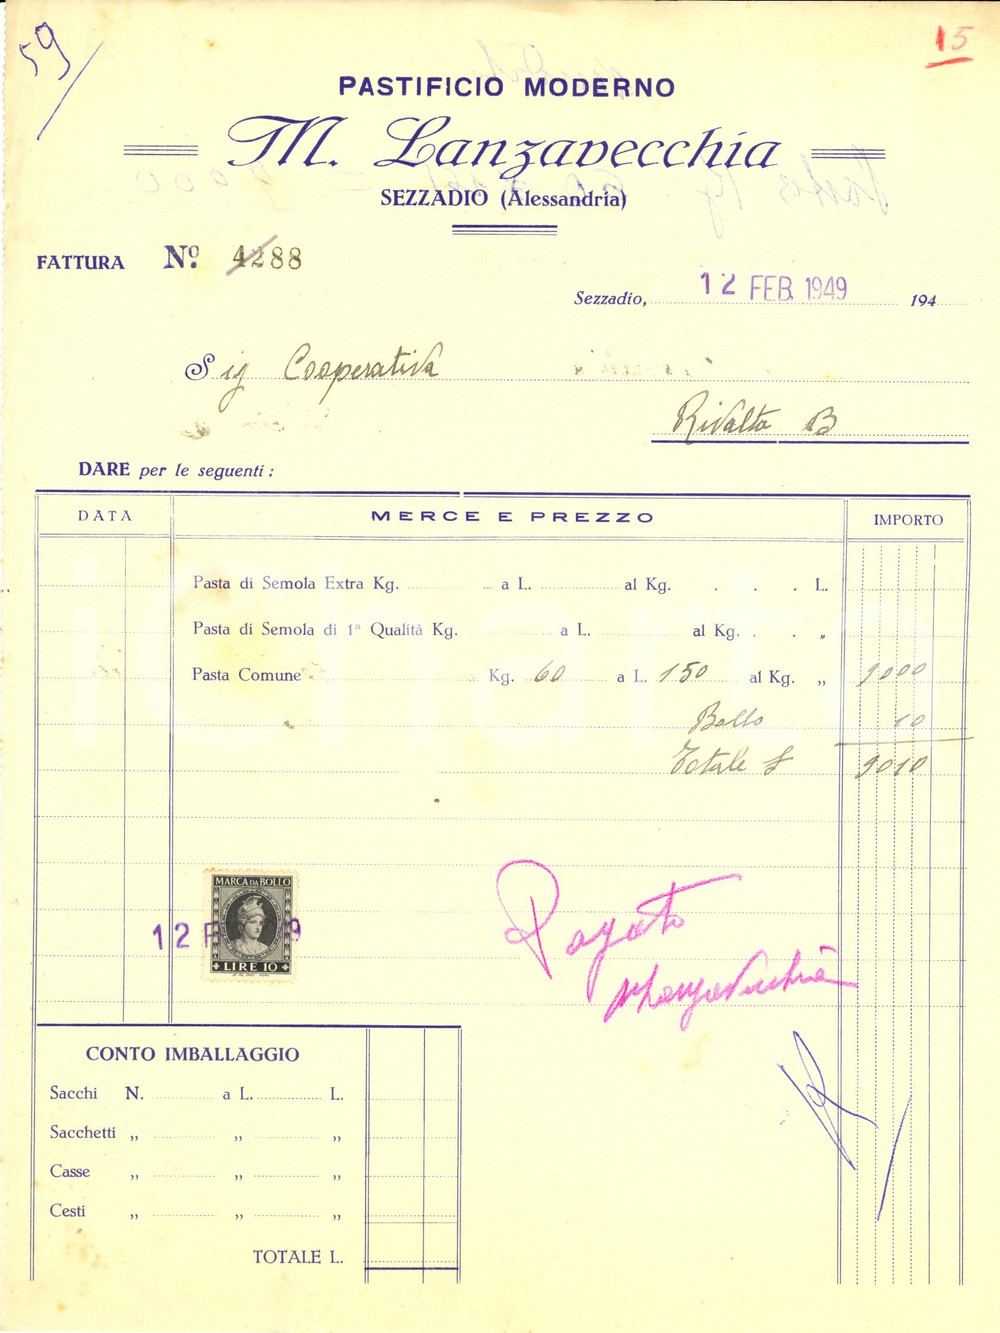 59
15
PASTIFICIO MODERNO
M. Lanzavecchia
SEZZADIO (Alessandria)
FATTURA Nº. 4288
Sezzadio, 12 FEB. 1949 194
Sig Cooperativa
Rivalta B
DARE per le seguenti :
DATA MERCE E PREZZO IMPORTO
Pasta di Semola Extra Kg. a L. al Kg. . . . L.
Pasta di Semola di 1ª Qualità Kg. a L. al Kg. . . „
Pasta Comune Kg. 60 a L. 150 al Kg. „ 9000
Bollo 10
Totale £ 9010
MARCA DA BOLLO
12 F 9
LIRE 10
Pagato
MLanzavecchia
CONTO IMBALLAGGIO
Sacchi N. a L. L.
Sacchetti „ „ „
Casse „ „ „
Cesti „ „ „
TOTALE L.